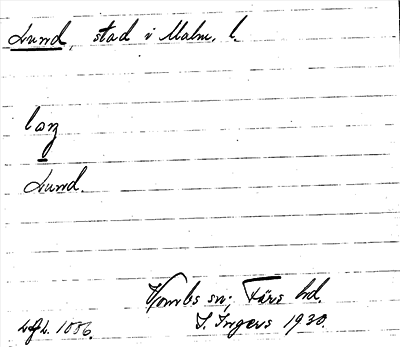 Lund, stad i Malm. l.
Lund.
Vombs sn; Färs hd.
I. Ingers 1930.
1086.